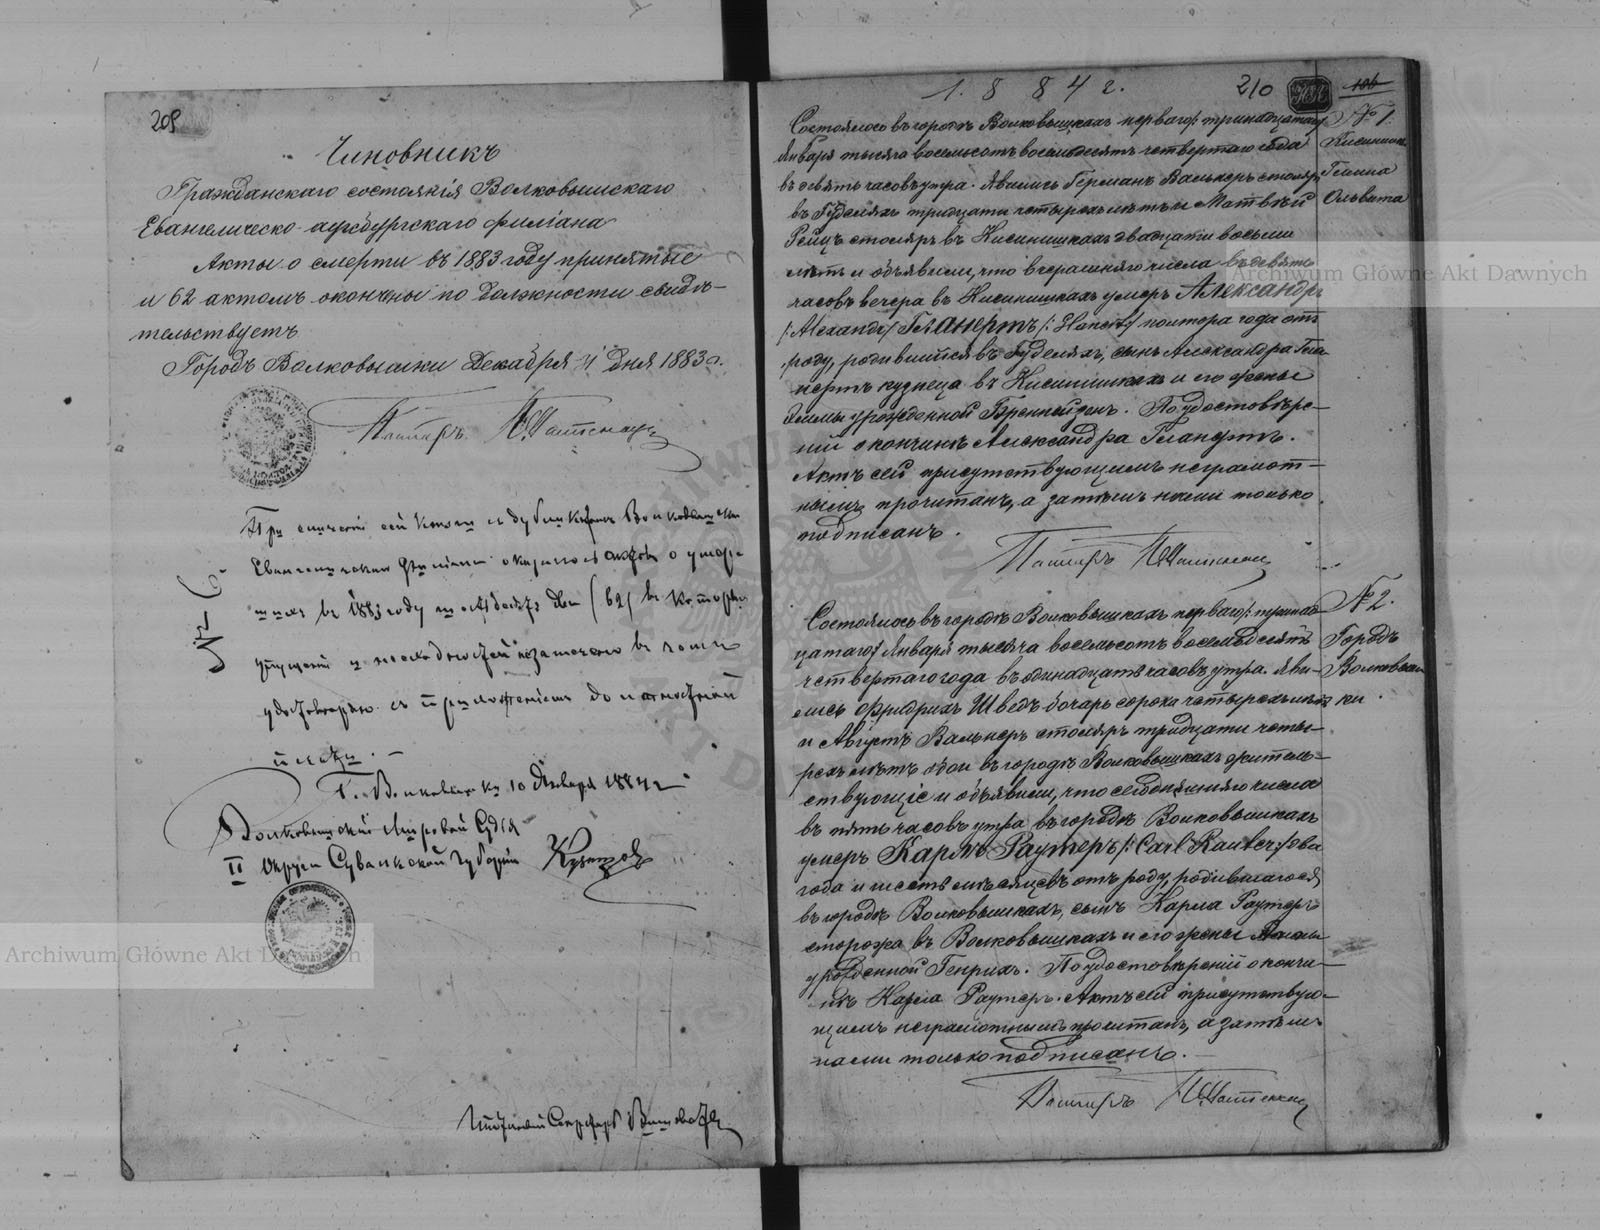 209
Чиновникъ
Гражданскаго состоянія Волковышскаго
Евангелическо-аугсбургскаго филіала
Акты о смерти въ 1883 году принятые
и 62 актомъ окончены по должности свидѣ-
тельствуетъ
Городъ Волковышки Декабря 31 дня 1883 г.
Пасторъ
При сей книги Волковышск
Евангелическ о умер-
шихъ въ 1883 году шестьдесятъ два (62) въ которы
упущеній и въ чемъ
удостовѣряю съ приложеніемъ должностной
печати. —
Г. Волковышки 10 Января 1884 г.
Волковышскій Мировой Судья
II Округа Сувалкской Губерніи
Секретарь
1884 г.
210
106
№ 1.
Кисинишки
Гелина
Ольвита
Состоялось въ городѣ Волковышкахъ перваго /: тринадцатаго
Января тысяча восемьсотъ восемьдесятъ четвертаго года
въ девять часовъ утра. Явились Германъ Валькеръ столяръ
въ Гуделяхъ тридцати четырехъ лѣтъ и Матвѣй
Рейцъ столяръ въ Кисинишкахъ двадцати восьми
лѣтъ и объявили, что вчерашняго числа въ девять
часовъ вечера въ Кисинишкахъ умеръ Александръ
/: Alexandr / Гланертъ /: Glanert / полтора года отъ
роду, родившійся въ Гуделяхъ, сынъ Александра Гла-
нертъ кузнеца въ Кисинишкахъ и его жены
Эммы урожденной. По удостовѣре-
ніи о кончинѣ Александра Гланертъ.
Актъ сей присутствующимъ неграмот-
нымъ прочитанъ, а затѣмъ нами только
подписанъ.
Пасторъ
№ 2.
Городъ
Волковыш
ки.
Состоялось въ городѣ Волковышкахъ перваго /: тринад-
цатаго / Января тысяча восемьсотъ восемьдесятъ
четвертаго года въ одинадцать часовъ утра. Яви-
лись Фридрихъ Шведъ бочарь сорока четырехъ лѣтъ
и Августъ Валькеръ столяръ тридцати четы-
рехъ лѣтъ обои въ городѣ Волковышкахъ житель-
ствующіе и объявили, что сегодняшняго числа
въ пять часовъ утра въ городѣ Волковышкахъ
умеръ Карлъ Раутеръ /: Carl Rauter / два
года и шесть мѣсяцевъ отъ роду, родившагося
въ городѣ Волковышкахъ, сынъ Карла Раутеръ
сторожа въ Волковышкахъ и его жены
урожденной Генрихъ. По удостовѣреніи о кончи-
нѣ Карла Раутеръ. Актъ сей присутствую-
щимъ неграмотнымъ прочитанъ, а затѣмъ
нами только подписанъ. —
Пасторъ
Archiwum Główne Akt Dawnych
Archiwum Główne Akt Dawnych